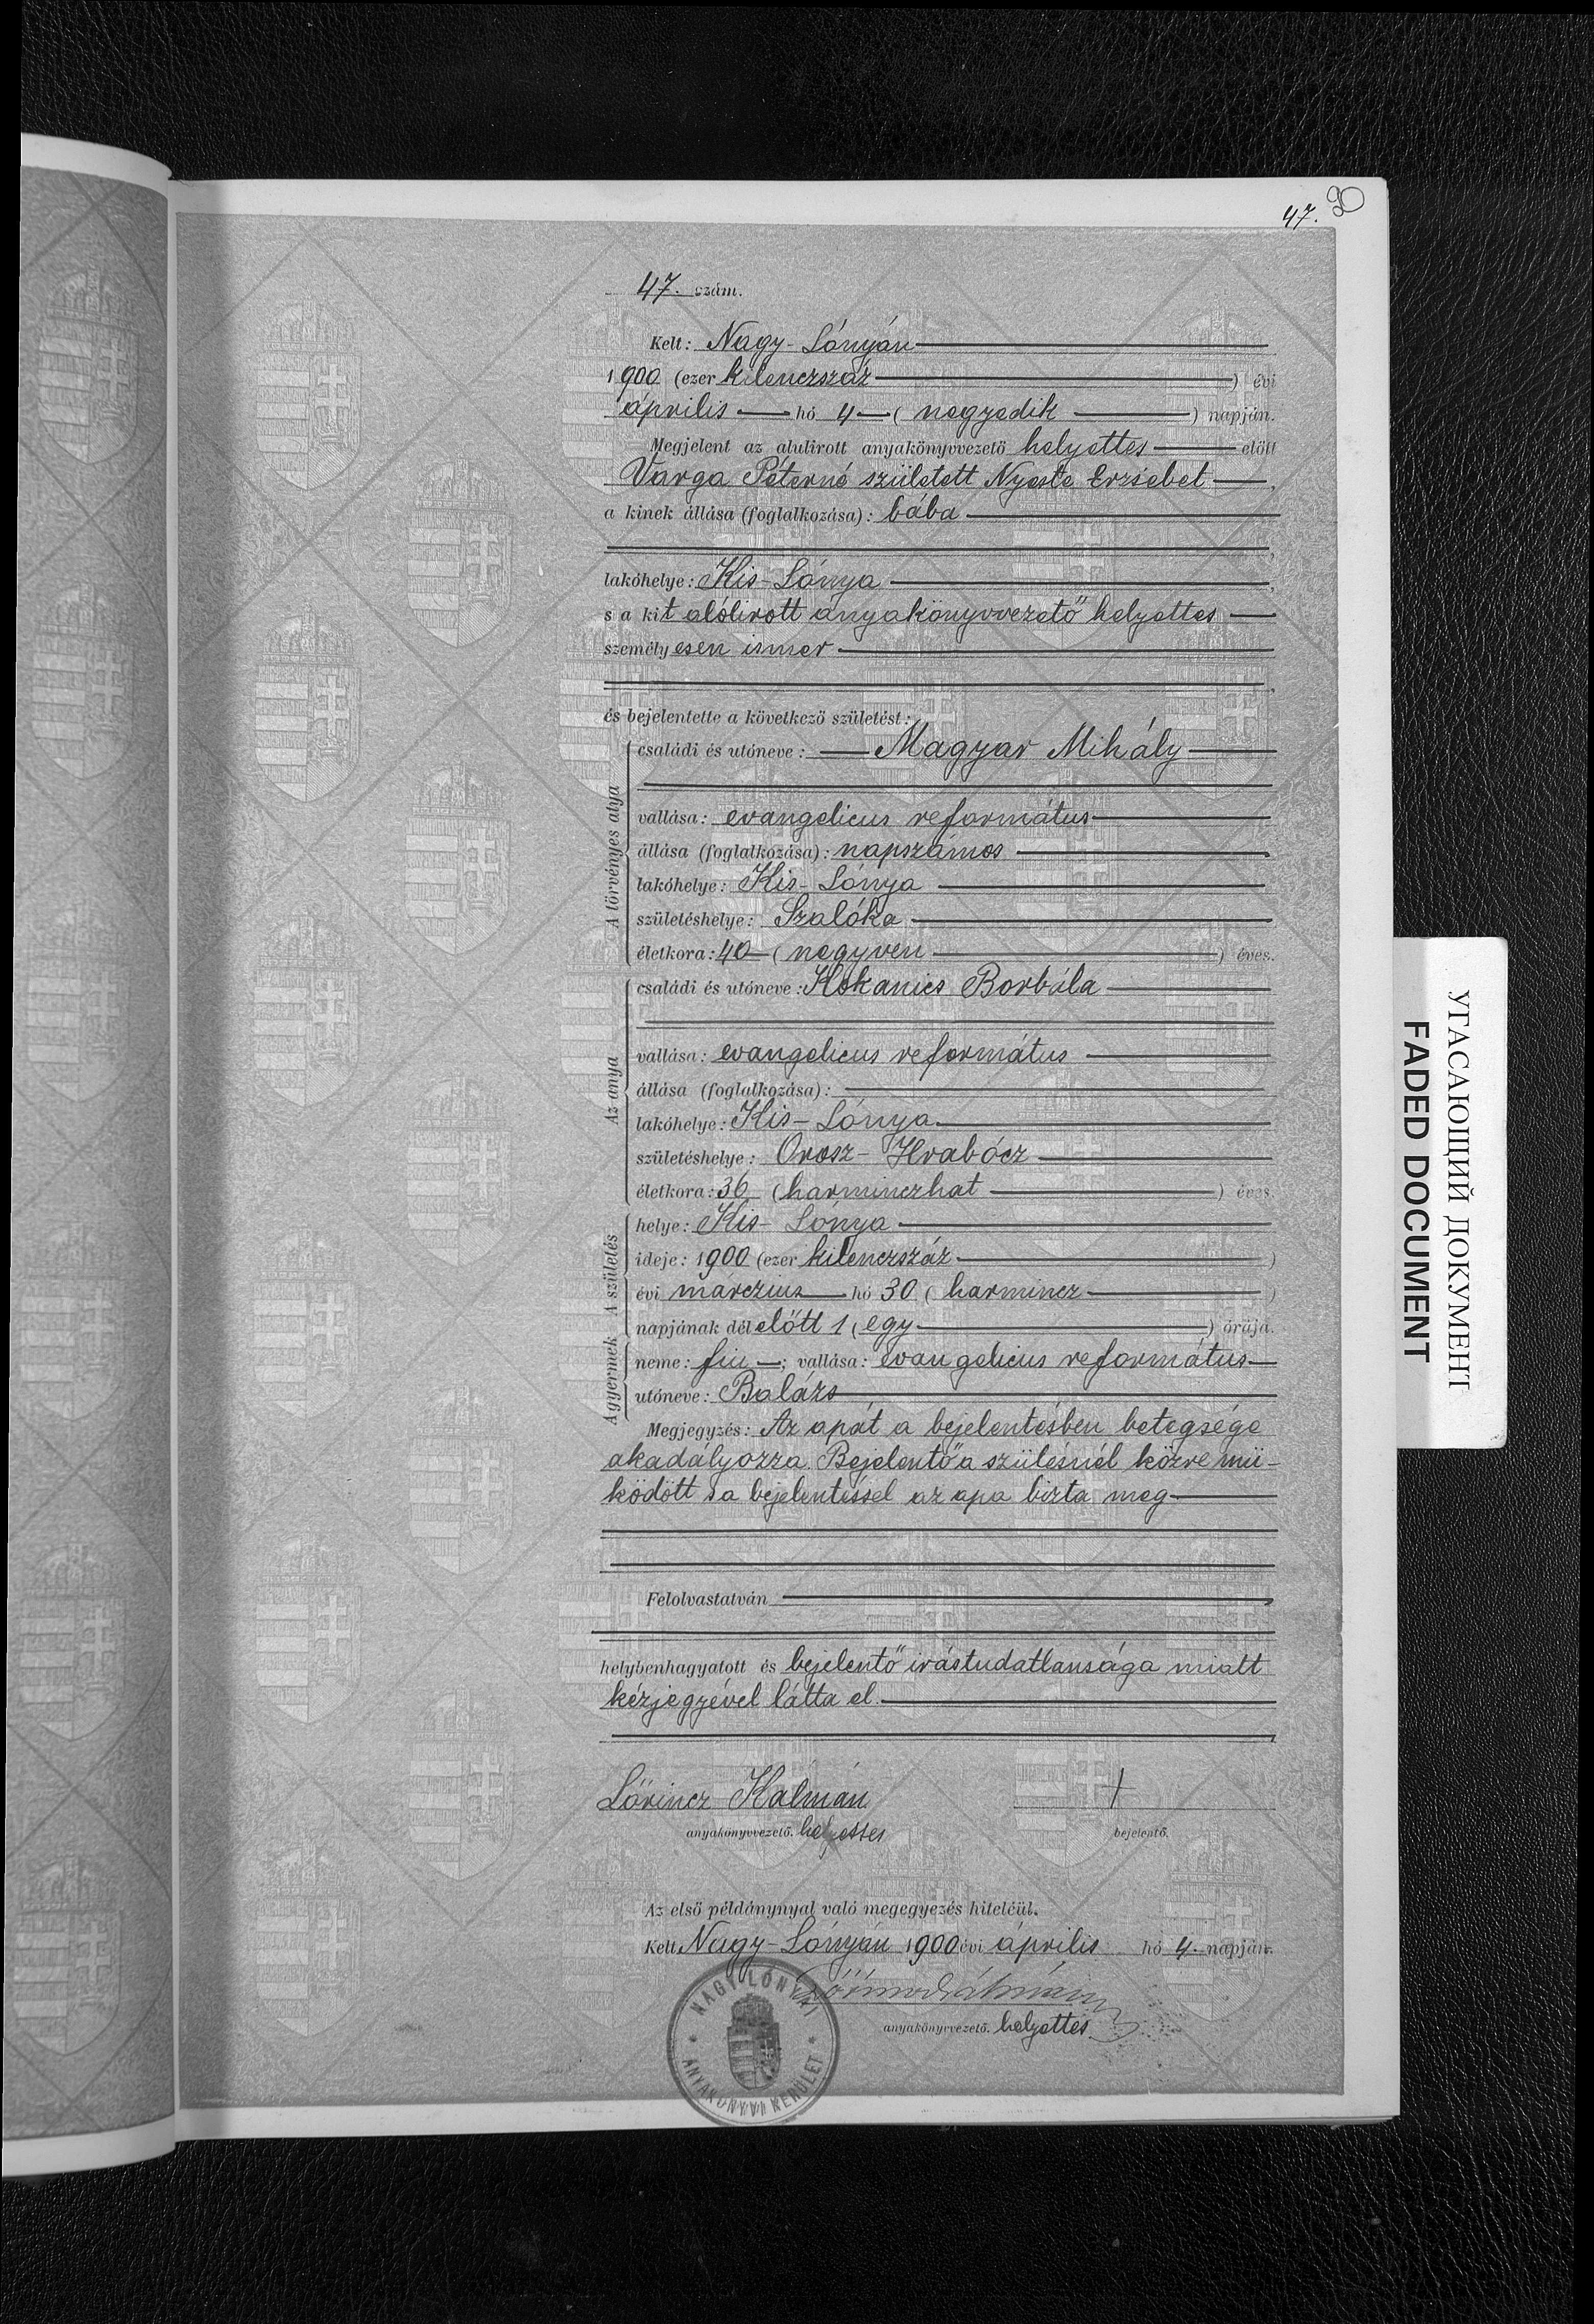 47. 30
47. szám.
Kelt: Nagy-Lónyán
1900 (ezer kilenczszáz) évi
április hó 4 (negyedik) napján.
Megjelent az alulirott anyakönyvvezető helyettes előtt
Varga Péterné született Nyeste Erzsébet,
a kinek állása (foglalkozása): bába
lakóhelye: Kis-Lónya,
s a kit alólirott anyakönyvvezető helyettes
személyesen ismer
és bejelentette a következő születést:
A törvényes atya
családi és utóneve: Magyar Mihály
vallása: evangelicus református
állása (foglalkozása): napszámos
lakóhelye: Kis-Lónya
születéshelye: Szalóka
életkora: 40 (negyven) éves.
Az anya
családi és utóneve: Kokanics Borbála
vallása: evangelicus református
állása (foglalkozása):
lakóhelye: Kis-Lónya
születéshelye: Orosz-Hrabócz
életkora: 36 (harminczhat) éves.
A születés
helye: Kis-Lónya
ideje: 1900 (ezer kilenczszáz)
évi márczius hó 30 (harmincz)
napjának délelőtt 1 (egy) órája.
A gyermek
neme: fiu; vallása: evangelicus református
utóneve: Balázs
Megjegyzés: Az apát a bejelentésben betegsége
akadályozza. Bejelentő a szülésnél közre mű-
ködött s a bejelentéssel az apa bizta meg
Felolvastatván
helybenhagyatott és bejelentő irástudatlansága miatt
kézjegyével látta el.
Lőrincz Kálmán +
anyakönyvvezető. helyettes bejelentő.
Az első példánynyal való megegyezés hiteléül.
Kelt Nagy-Lónyán 1900 évi április hó 4. napján.
anyakönyvvezető. helyettes
NAGY LÓNYAI
ANYAKÖNYVI KERÜLET
УГАСАЮЩИЙ ДОКУМЕНТ
FADED DOCUMENT